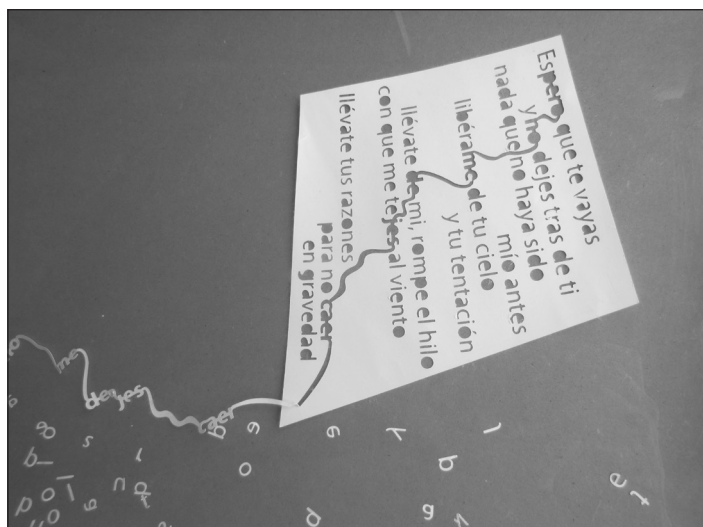 Espero que te vayas
y no dejes tras de ti
nada que no haya sido
mío antes
libérame de tu cielo
y tu tentación
llévate de mi, rompe el hilo
con que me tejes al viento
llévate tus razones
para no caer
en gravedad
no me dejes caer